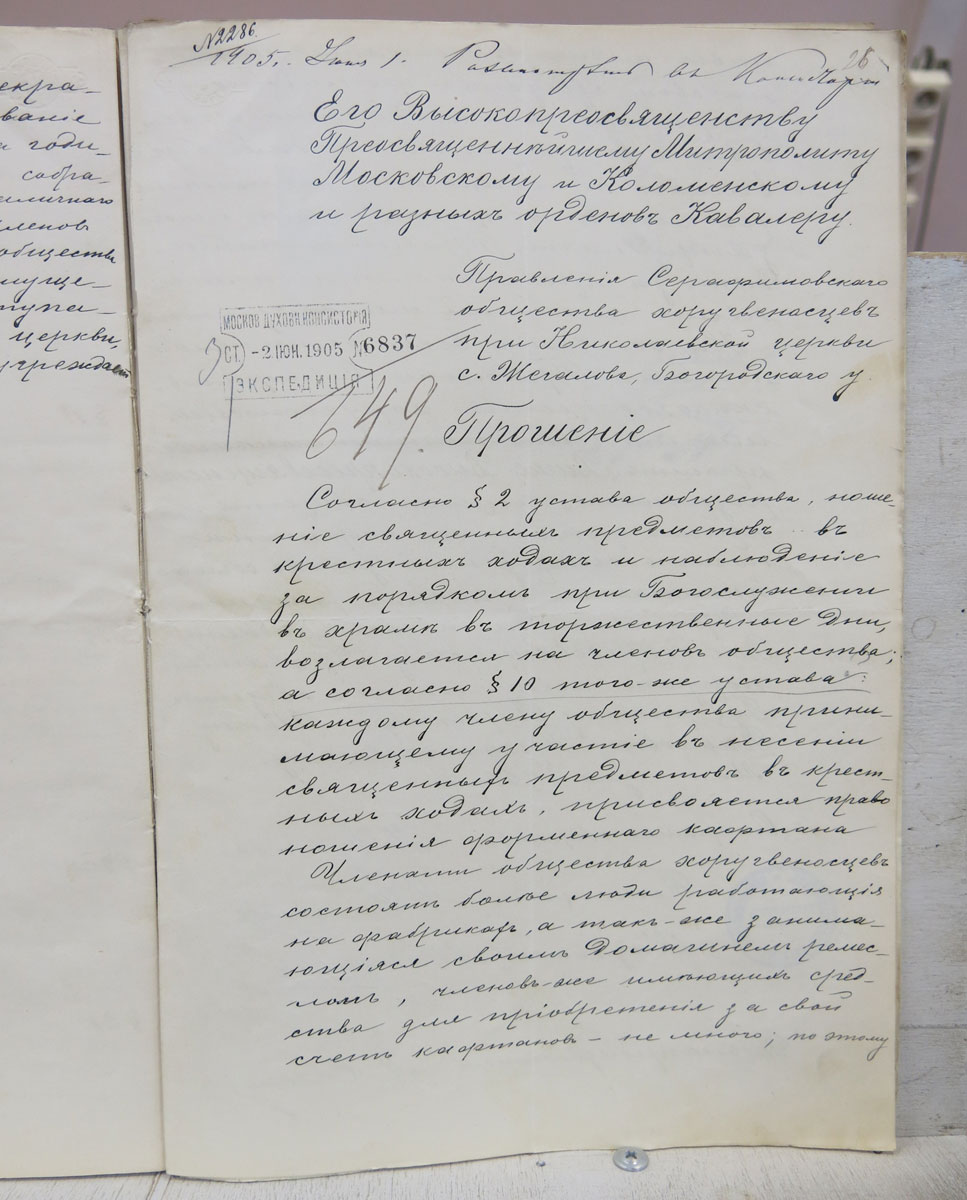 №2286.
26
1905. Іюня 1. Разсмотрѣть въ Консисторіи
Его Высокопреосвященству
Преосвященнѣйшему Митрополиту
Московскому и Коломенскому
и разныхъ орденовъ Кавалеру.
Правленія Серафимовскаго
общества хоругвеносцевъ
при Николаевской церкви
с. Жегалова, Богородскаго у.
МОСКОВ. ДУХОВН. КОНСИСТОРІЯ
3 СТ. -2 ІЮН. 1905 №6837
ЭКСПЕДИЦІЯ
649
Прошеніе
Согласно § 2 устава общества, ноше-
ніе священныхъ предметовъ въ
крестныхъ ходахъ и наблюденіе
за порядкомъ при Богослуженіи
въ храмѣ въ торжественные дни,
возлагается на членовъ общества;
а согласно § 10 того-же устава:
каждому члену общества прини-
мающему участіе въ несеніи
священныхъ предметовъ въ крест-
ныхъ ходахъ, присвояется право
ношенія форменнаго кафтана
Членами общества хоругвеносцевъ
состоятъ болѣе люди работающія
на фабрикахъ, а такъ-же занима-
ющіяся своимъ домашнемъ ремес-
ломъ, членовъ-же имѣющихъ сред-
ства для пріобретенія за свой
счетъ кафтановъ - не много; по этому
екра-
ваніе
годи-
собра-
личнаго
леновъ
общества
муще-
тупа-
церкви,
учреждаетъ